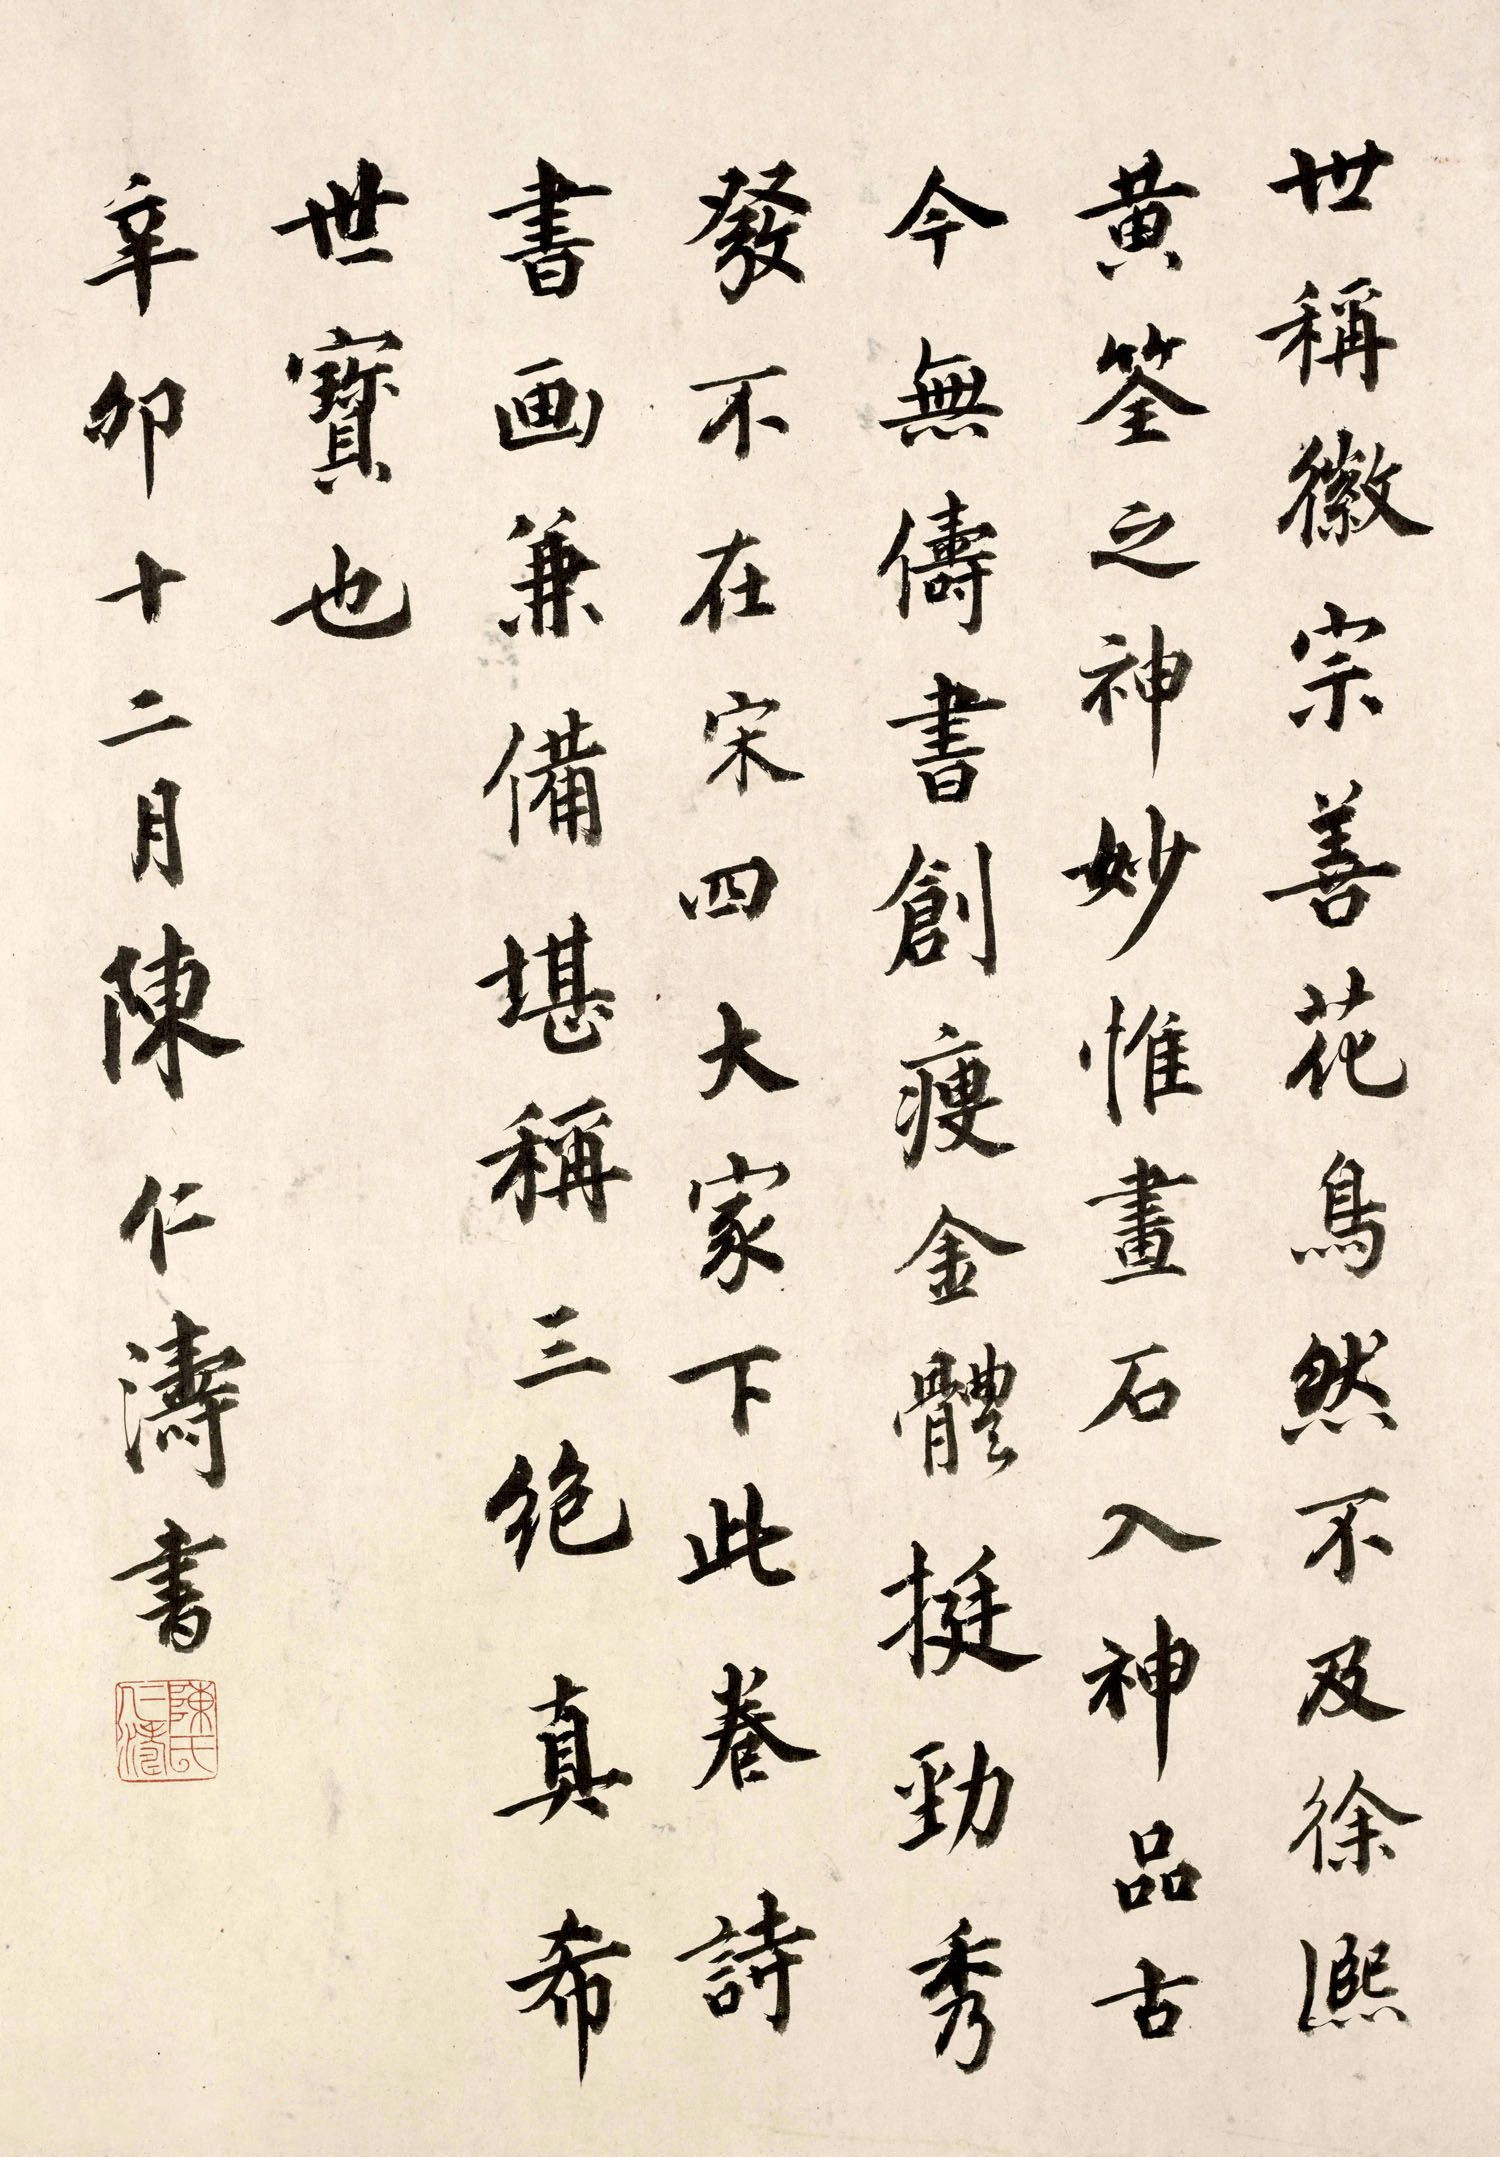 世稱徽宗善花鳥然不及徐熙
黄筌之神妙惟畫石入神品古
今無儔書創瘦金體挺勁秀
發不在宋四大家下此卷詩
書画兼備堪稱三絶真希
世寶也
辛卯十二月陳仁濤書
陳氏
仁濤